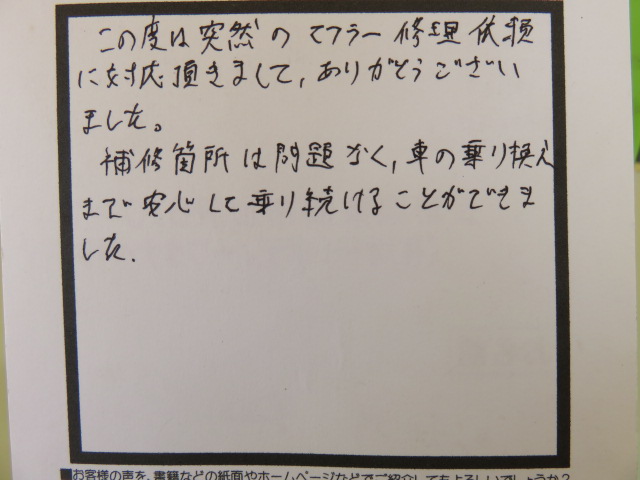 この度は突然のマフラー修理依頼
に対応頂きまして、ありがとうござい
ました。
補修箇所は問題なく、車の乗り換え
まで安心して乗り続けることができま
した.
■お客様の声を、書籍などの紙面やホームページなどでご紹介してもよろしいでしょうか？